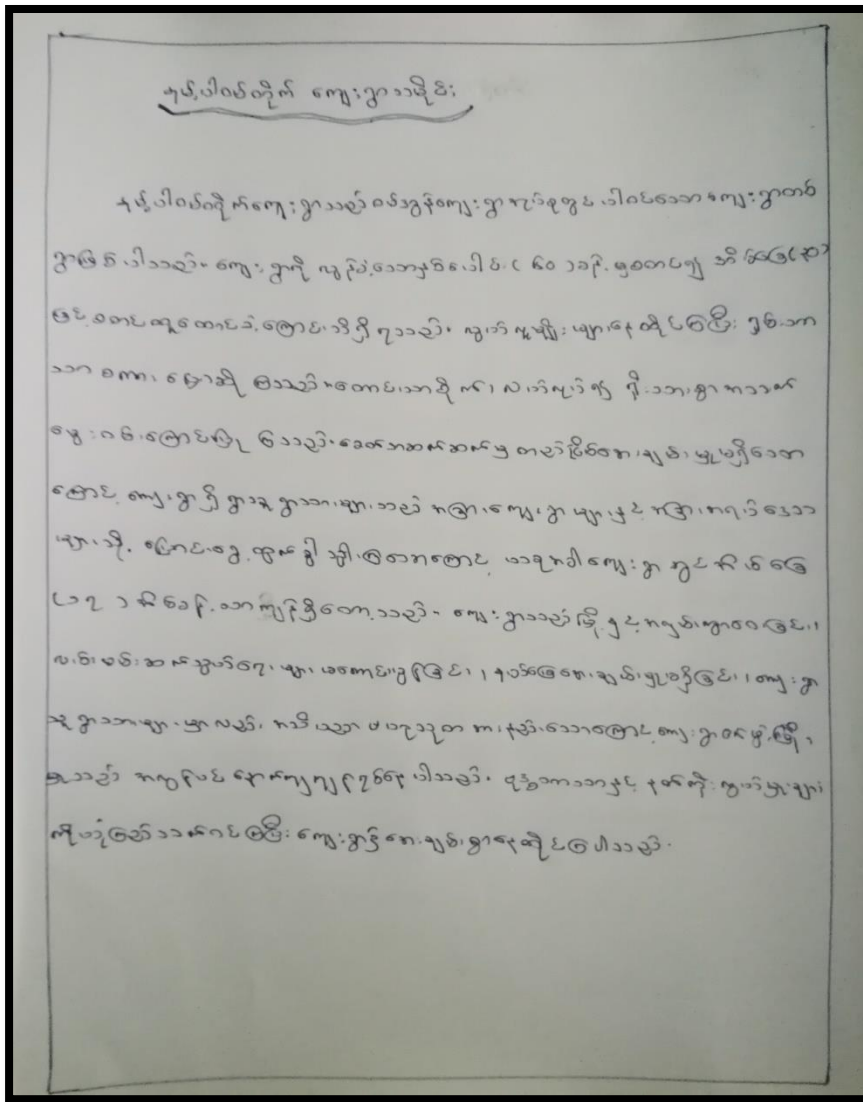 နမ့်ပါဝမ်တိုက် ကျေးရွာသမိုင်း
နမ့်ပါဝမ်တိုက်ကျေးရွာသည် ဝမ်သွန်ကျေးရွာအုပ်စုတွင် ပါဝင်သောကျေးရွာတစ်
ရွာဖြစ်ပါသည်။ ကျေးရွာကို လွန်ခဲ့သောနှစ်ပေါင်း (၆၀) ခန့်မှစတင်၍ အိမ်ခြေ(၅၀)
ဖြင့် စတင်တူထောင်ခဲ့ကြောင်းသိရှိရသည်။ လူမျိုးများနေထိုင်ကြပြီး ရှမ်းဘာ
သာ စကား ပြောဆိုကြသည်။ တောင်ယာစိုက်၊ လယ်လုပ်၍ ရိုးသားစွာအသက်
မွေးဝမ်းကြောင်းပြုကြသည်။ ခေတ်အဆက်ဆက်မှ တည်ငြိမ်အေးချမ်းမှုမရှိသော
ကြောင့် ကျေးရွာရှိ ရွာသူရွာသားများသည် အခြားကျေးရွာများနှင့် အခြားအရပ်ဒေသ
များသို့ ပြောင်းရွှေ့ထွက်ခွါသွါးကြသောကြောင့် ယခုအခါကျေးရွာတွင် အိမ်ခြေ
(၁၃) အိမ်ခန့်သာကျန်ရှိတော့သည်။ ကျေးရွာသည်မြို့နှင့်အလှမ်းကွာဝေးခြင်း၊
လမ်းပမ်းဆက်သွယ်ရေးများမကောင်းမွန်ခြင်း၊ နယ်မြေအေးချမ်းမှုမရှိခြင်း၊ ကျေးရွာ
သူရွာသားများမှာလည်း အသိပညာ ဗဟုသုတ အားနည်းသောကြောင့် ကျေးရွာဖွံ့ဖြိုး
မှုသည် အလွန်ပင် နောက်ကျကျန်ရစ်နေပါသည်။ ဗုဒ္ဓဘာသာနှင့် နတ်ကိုးကွယ်မှုများ
ကိုယုံကြည်သက်ဝင်ကြပြီး ကျေးရွာ၌အေးချမ်းစွာနေထိုင်ကြပါသည်။